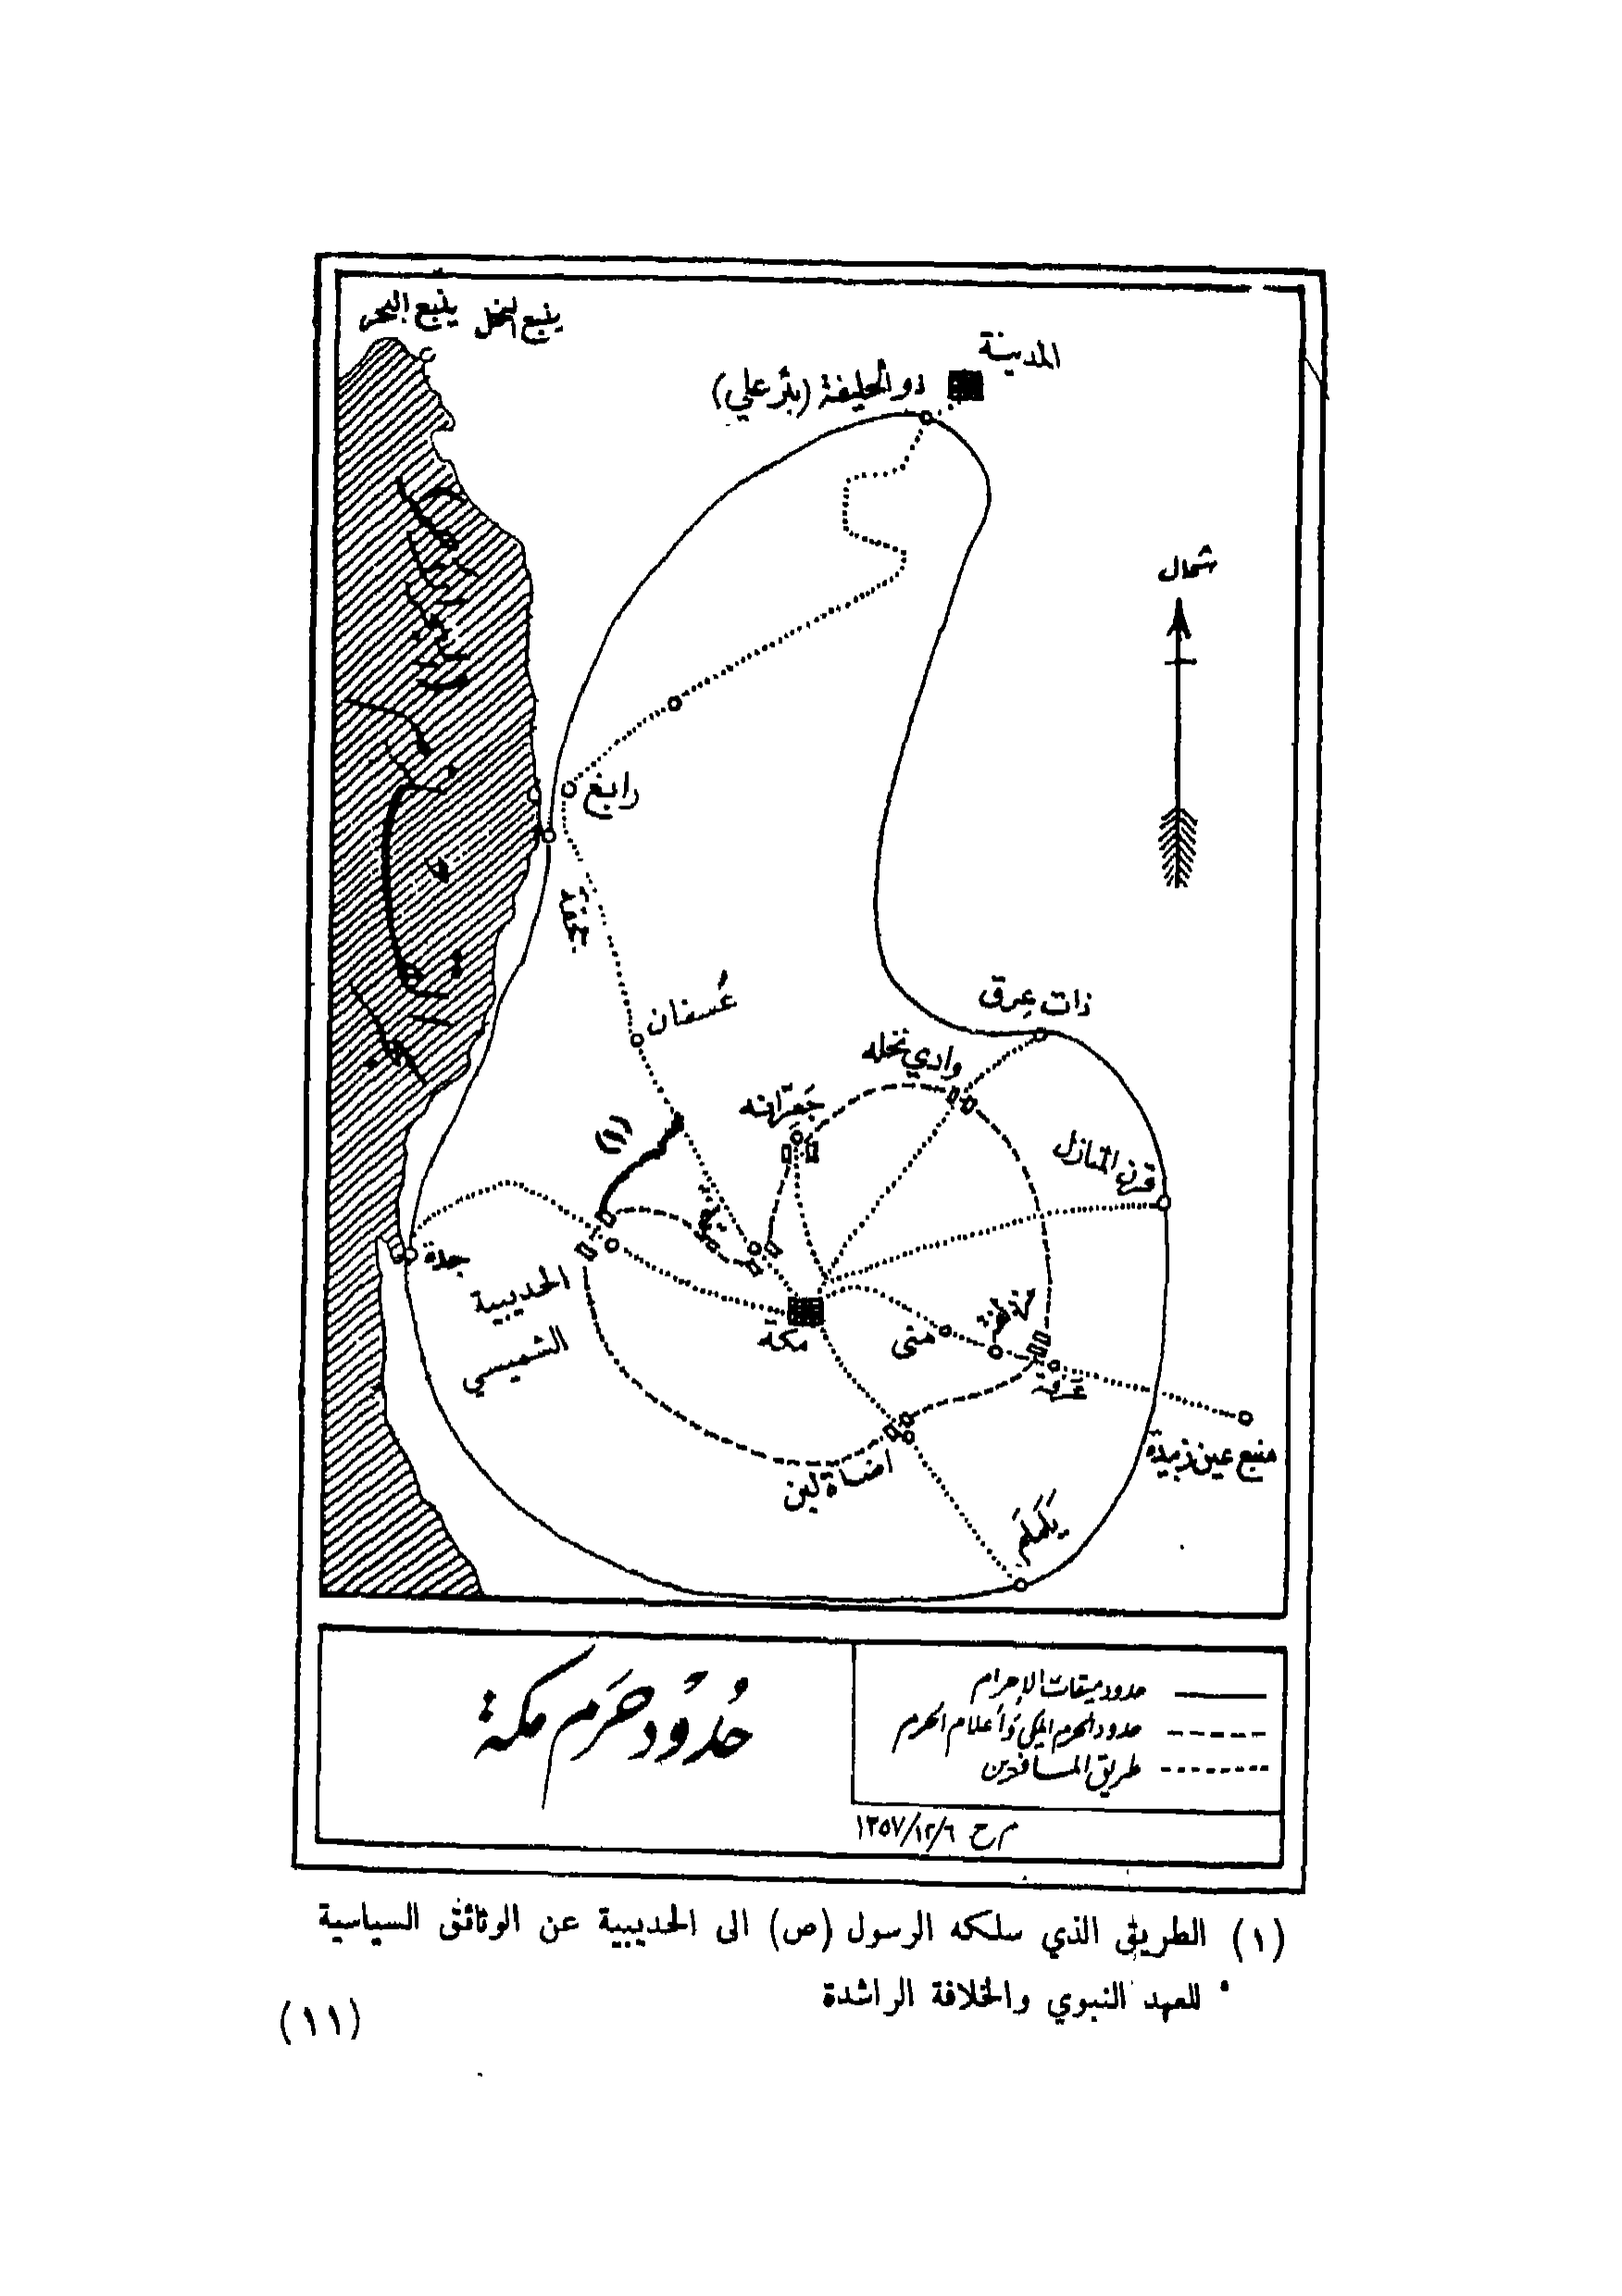 ينبع البحر
ينبع النخل
المدينة
ذو الحليفة (بئر علي)
شمال
رابغ
جحفة
عُسفان
ذات عِرق
وادي نخله
جَعرّانه
(١)
قرن المنازل
جدة
الحديبية
الشميسي
مكة
منى
مزدلفة
عرفة
منبع عين زبيدة
اضاة لبن
يَلَملَم
حُدُود حَرَم مكة
حدود ميقات الإحرام
حدود الحرم المكي وأعلام الحرم
طريق المسافرين
م ح ١٣٥٧/١٢/٦
(١) الطريق الذي سلكه الرسول (ص) الى الحديبية عن الوثائق السياسية
للعهد النبوي والخلافة الراشدة
(١١)